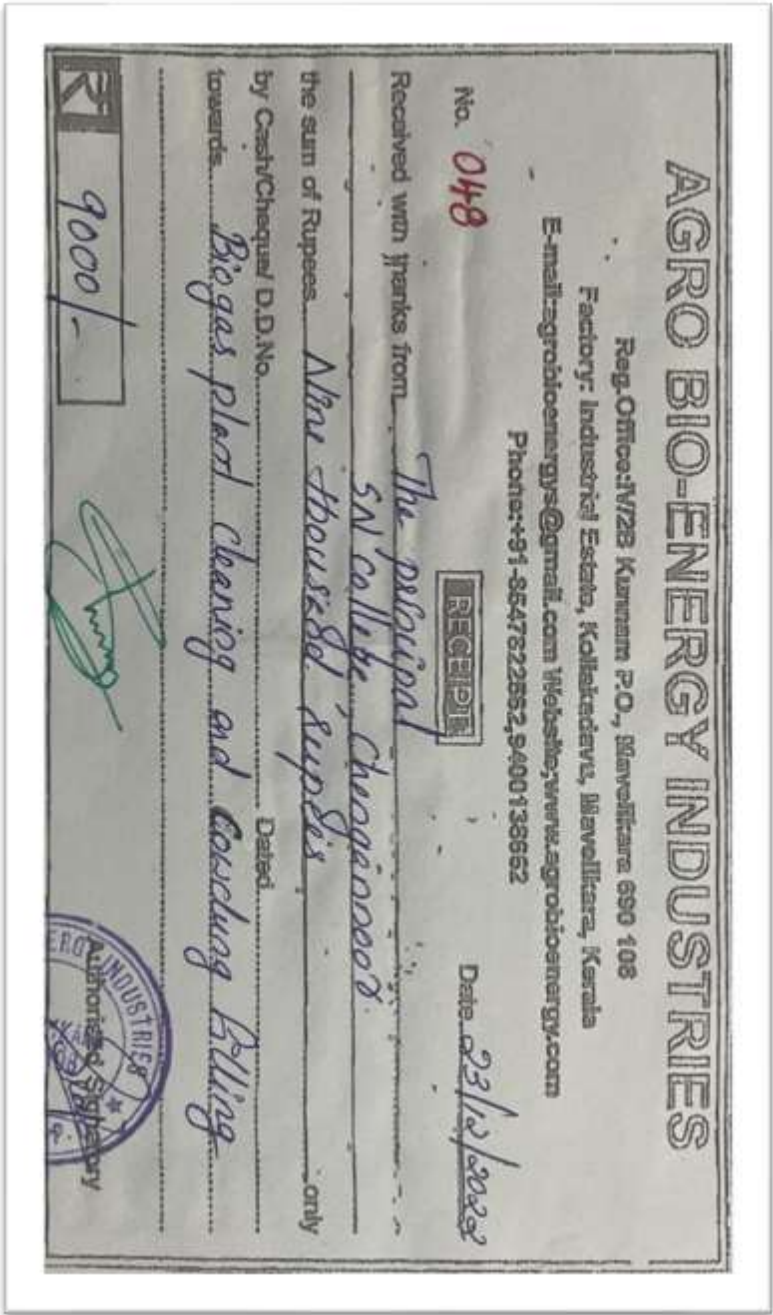 AGRO BIO-ENERGY INDUSTRIES
Reg.Office:IV/2B Kunnam P.O., Mavelikara 690 108
Factory: Industrial Estate, Kollakadavu, Mavelikara, Kerala
E-mail:agrobioenergys@gmail.com Website;www.agrobioenergy.com
Phone:+91-8547822562,9400138662
RECEIPT
No. 048 Date 23/12/2022
Received with thanks from The principal
SN college, Chengannoor
the sum of Rupees Nine thousand rupees only
by Cash/Cheque/ D.D.No. Dated
towards Biogas plant cleaning and Cowdung filling
₹ 9000/-
INDUSTRIES
Authorised Signatory